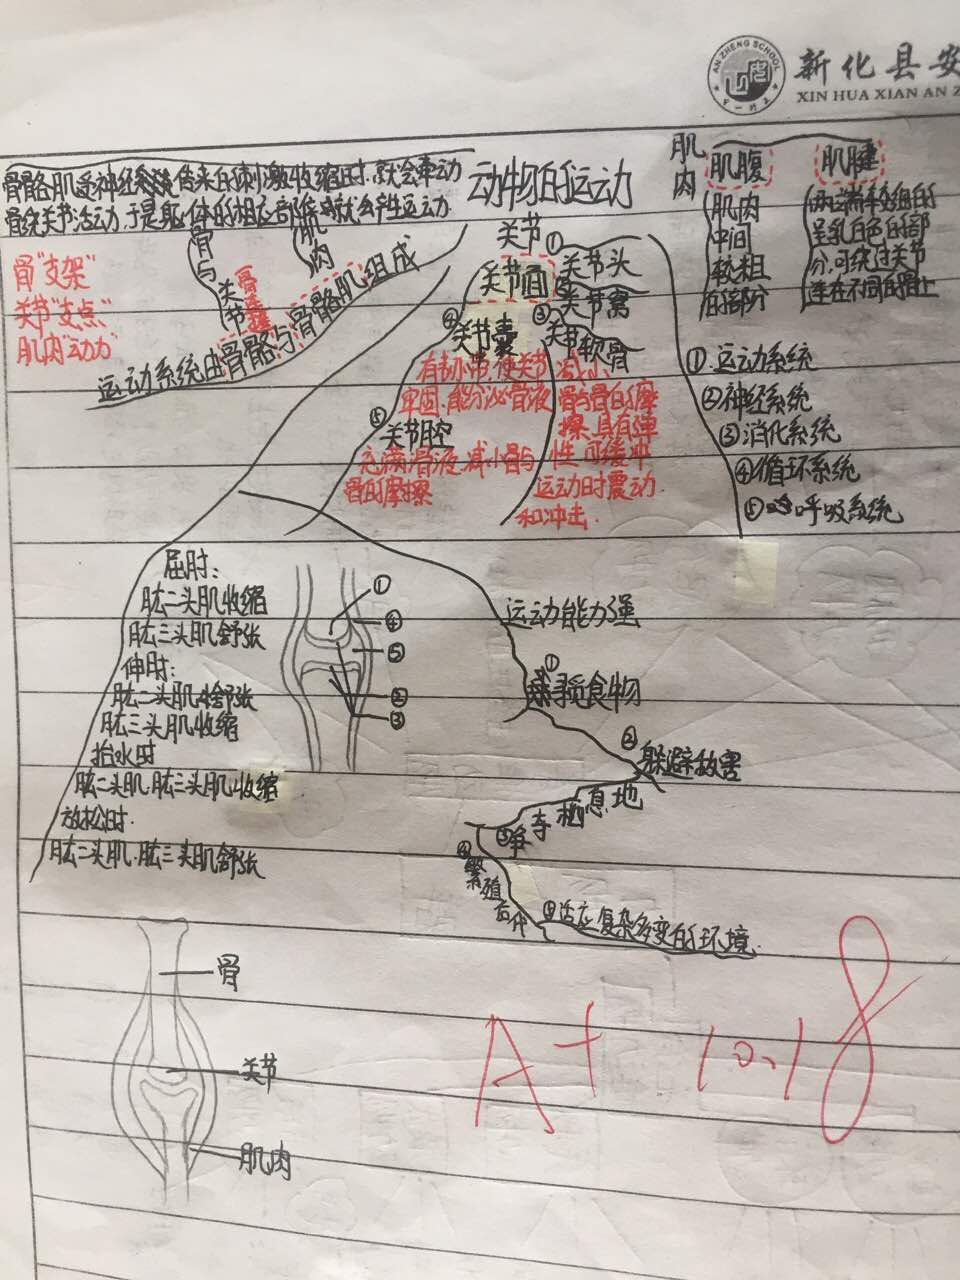 AN ZHENG SCHOOL
新化县安
XIN HUA XIAN AN Z
骨骼肌受神经传来的刺激收缩时,就会牵动
骨绕关节活动,于是躯体的相应部位就会产生运动.
动物的运动
骨"支架"
关节"支点"
肌肉"动力"
骨与关节
骨连接
肌肉
运动系统由骨骼与骨骼肌组成
关节
关节面
①关节头
②关节窝
③关节软骨
减小
骨与骨的摩
擦,具有弹
性,可缓冲
运动时震动
和冲击.
④关节囊
有韧带,使关节
牢固,能分泌骨液
⑤关节腔
充满滑液,减小骨与
骨的摩擦
肌肉
肌腹
肌肉
中间
较粗
的部分
肌腱
两端较细的
呈乳白色的部
分,可绕过关节
连在不同的骨上
①.运动系统
②神经系统
③消化系统
④循环系统
⑤呼吸系统
屈肘:
肱二头肌收缩
肱三头肌舒张
伸肘:
肱二头肌舒张
肱三头肌收缩
抬水时
肱二头肌.肱三头肌收缩
放松时.
肱二头肌.肱三头肌舒张
①
④
⑤
②
③
运动能力强
①寻觅食物
②躲避敌害
③争夺栖息地
④繁殖后代
⑤适应复杂多变的环境.
骨
关节
肌肉
A+ 10.18